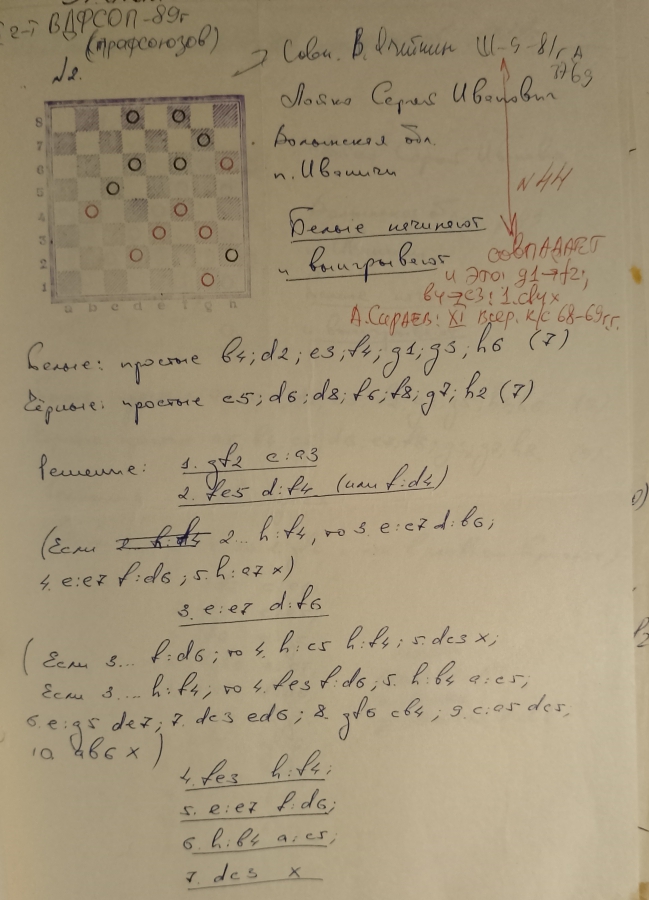 ВДФСОП-89г
(профсоюзов)
№2.
Совп. В. Ш-9-81г.
Лойко Сергей Иванович
Волынская обл.
п. Иваничи
№44
Белые начинают
и выигрывают
совпадает
и это: g1→f2;
b4→c3; 1.cb4x
А. Сираев: XI Всер. к/с 68-69г.г.
8
7
6
5
4
3
2
1
a b c d e f g h
Белые: простые b4; d2; e3; f4; g1; g3; h6 (7)
Чёрные: простые c5; d6; d8; f6; f8; g7; h2 (7)
Решение: 1. gf2 c:a3
2. fe5 d:f4 (или f:d4)
(Если 2... h:f4, то 3. e:c7 d:b6;
4. e:e7 f:d6; 5. h:a7 x)
3. e:e7 d:f6
(Если 3... f:d6; то 4. h:c5 h:f4; 5. dc3 x;
Если 3... h:f4; то 4. fe3 f:d6; 5. h:b4 a:c5;
6. e:g5 de7; 7. dc3 ed6; 8. gf6 cb4; 9. c:a5 dc5;
10 ab6 x)
4. fe3 h:f4;
5. e:e7 f:d6;
6. h:b4 a:c5;
7. dc3 x